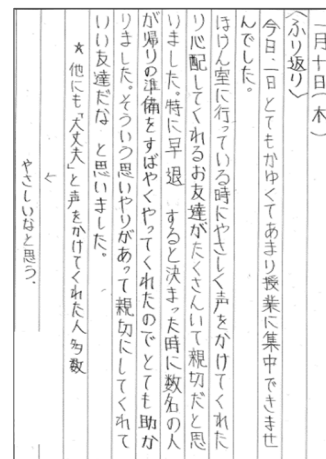 一月十日(木)
〈ふり返り〉
今日、一日とてもかゆくてあまり授業に集中できませ
んでした。
ほけん室に行っている時にやさしく声をかけてくれた
り心配してくれるお友達がたくさんいて親切だと思
いました。特に早退すると決まった時に数名の人
が帰りの準備をすばやくやってくれたのでとても助か
りました。そういう思いやりがあって親切にしてくれて
いい友達だなと思いました。
★他にも「大丈夫」と声をかけてくれた人多数
←
やさしいなと思う.